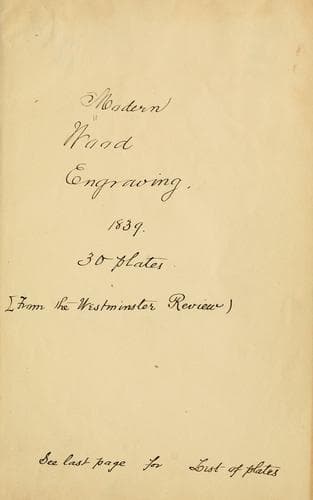 Modern
Wood
Engraving.
1839.
30 plates.
[From the Westminster Review)
See last page for List of plates